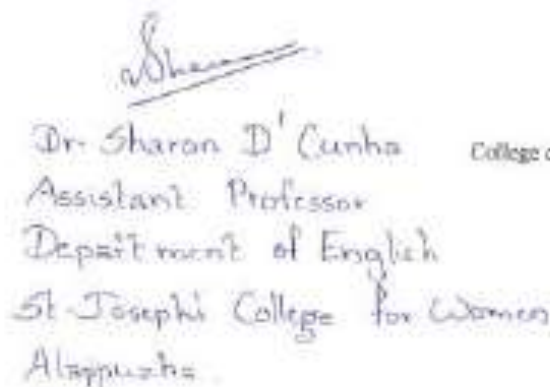 Dr. Sharon D'Cunha
College
Assistant Professor
Department of English
St. Joseph's College for Women
Alappuzha.